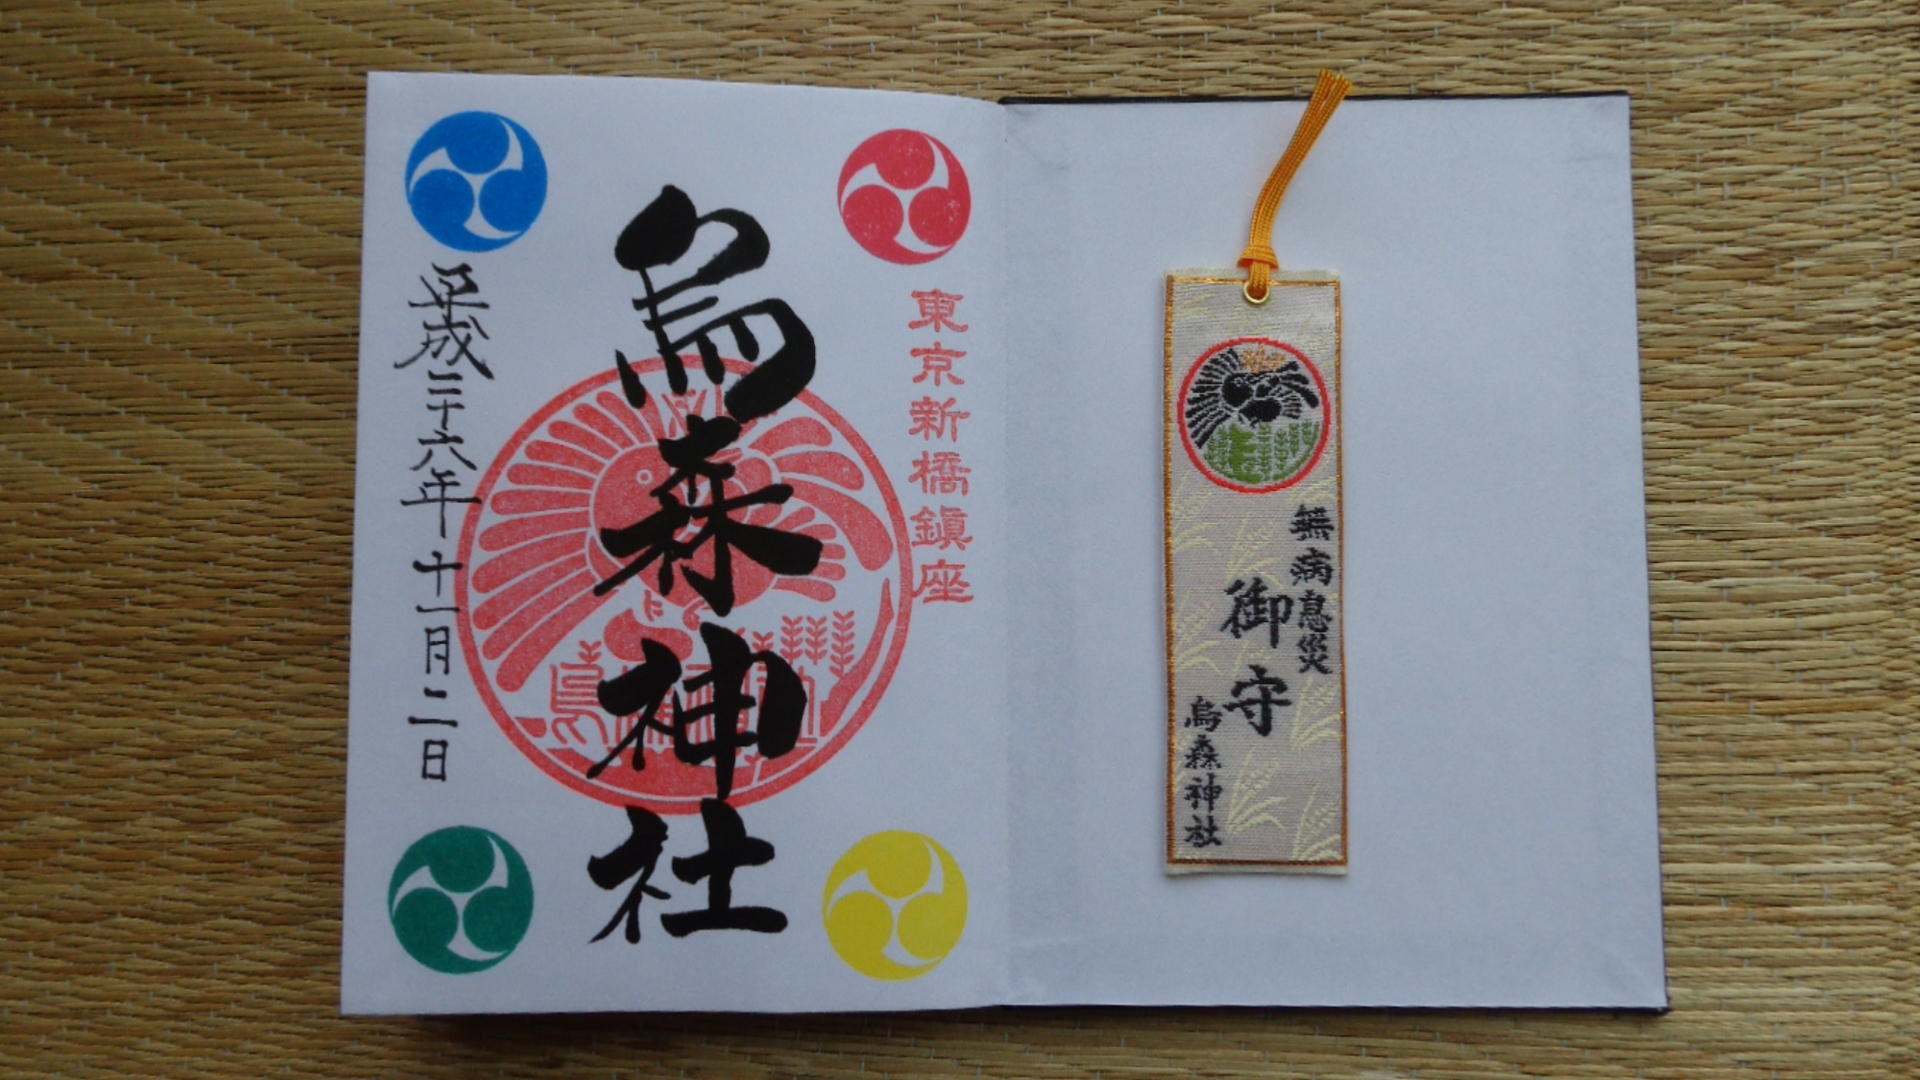 無病息災
御守
烏森神社
東京新橋鎮座
烏森神社
平成二十六年十一月二日